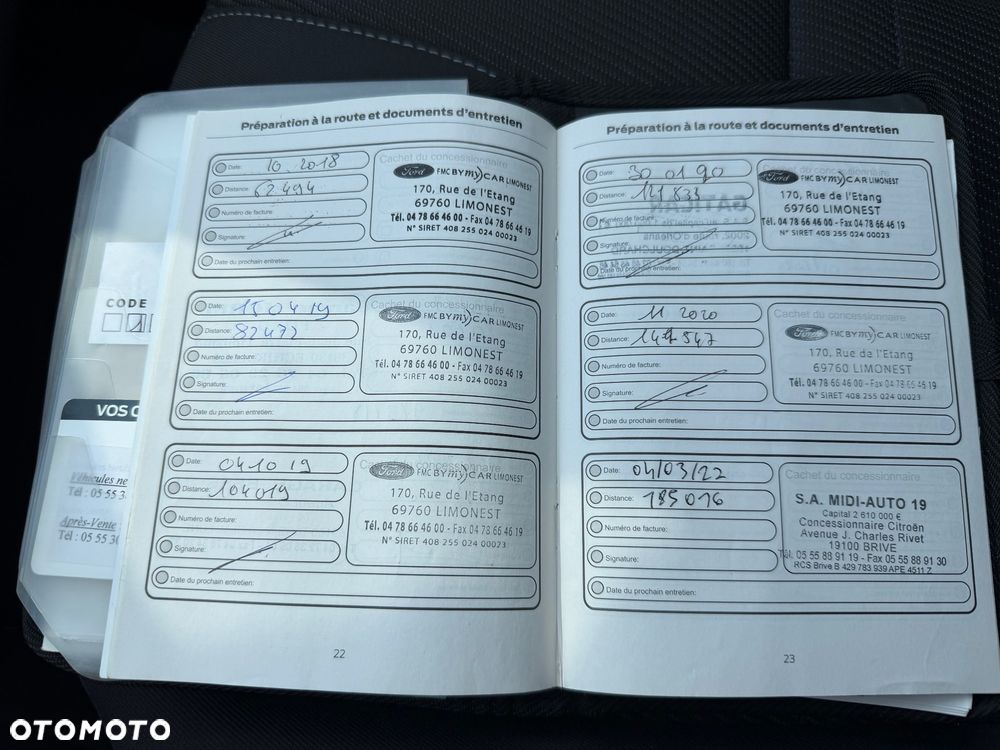 Préparation à la route et documents d'entretien
Date: 10 2018
Distance: 62494
Numéro de facture:
Signature:
Date du prochain entretien:
Cachet du concessionnaire
Ford FMC BY my) CAR LIMONEST
170, Rue de l'Etang
69760 LIMONEST
Tél. 04 78 66 46 00 - Fax 04 78 66 46 19
N° SIRET 408 255 024 00023
Date: 15 04 19
Distance: 82472
Numéro de facture:
Signature:
Date du prochain entretien:
Cachet du concessionnaire
Ford FMC BY my) CAR LIMONEST
170, Rue de l'Etang
69760 LIMONEST
Tél. 04 78 66 46 00 - Fax 04 78 66 46 19
N° SIRET 408 255 024 00023
Date: 04 10 19
Distance: 104019
Numéro de facture:
Signature:
Date du prochain entretien:
Cachet du concessionnaire
Ford FMC BY my) CAR LIMONEST
170, Rue de l'Etang
69760 LIMONEST
Tél. 04 78 66 46 00 - Fax 04 78 66 46 19
N° SIRET 408 255 024 00023
22
Préparation à la route et documents d'entretien
Date: 30 01 90
Distance: 121833
Numéro de facture:
Signature:
Date du prochain entretien:
Cachet du concessionnaire
Ford FMC BY my) CAR LIMONEST
170, Rue de l'Etang
69760 LIMONEST
Tél. 04 78 66 46 00 - Fax 04 78 66 46 19
N° SIRET 408 255 024 00023
Date: 11 2020
Distance: 147547
Numéro de facture:
Signature:
Date du prochain entretien:
Cachet du concessionnaire
Ford FMC BY my) CAR LIMONEST
170, Rue de l'Etang
69760 LIMONEST
Tél. 04 78 66 46 00 - Fax 04 78 66 46 19
N° SIRET 408 255 024 00023
Date: 04/03/22
Distance: 185016
Numéro de facture:
Signature:
Date du prochain entretien:
Cachet du concessionnaire
S.A. MIDI-AUTO 19
Capital 2 610 000 €
Concessionnaire Citroën
Avenue J. Charles Rivet
19100 BRIVE
Tél. 05 55 88 91 19 - Fax 05 55 88 91 30
RCS Brive B 429 783 939 APE 4511 Z
23
CODE
1
VOS
Véhicules ne
Tél : 05 55 3
Après-Vente
Tél : 05 55 30
OTOMOTO